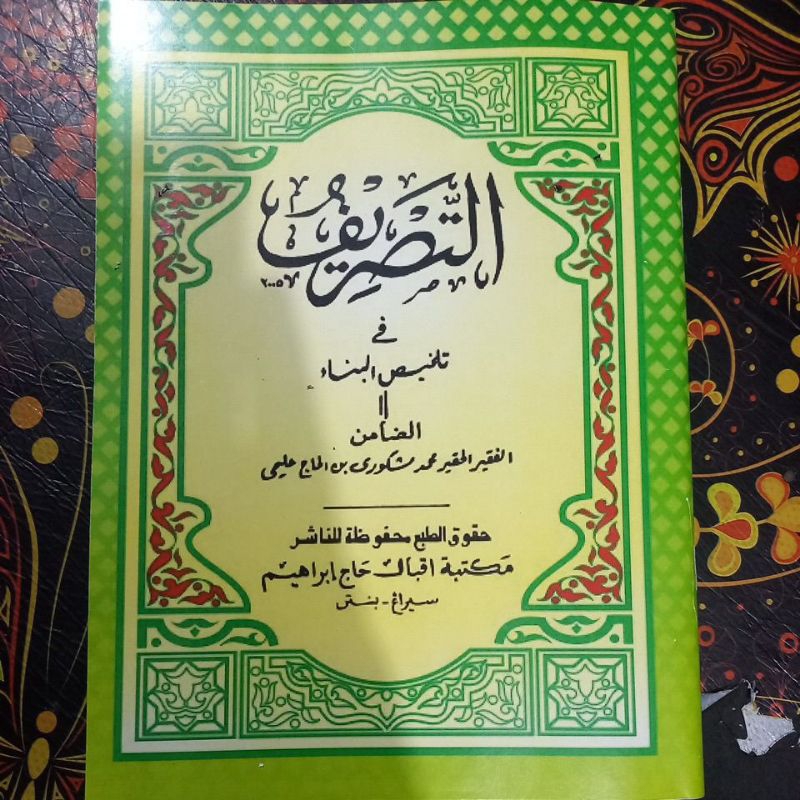 التَّصْرِيف
٢٠٠٥
في
تلخيص البناء
الضامن
الفقير الحقير محمد مشكورى بن الحاج حليمى
حقوق الطبع محفوظة للناشر
مكتبة اقبال حاج إبراهيم
سيراغ - بنتن